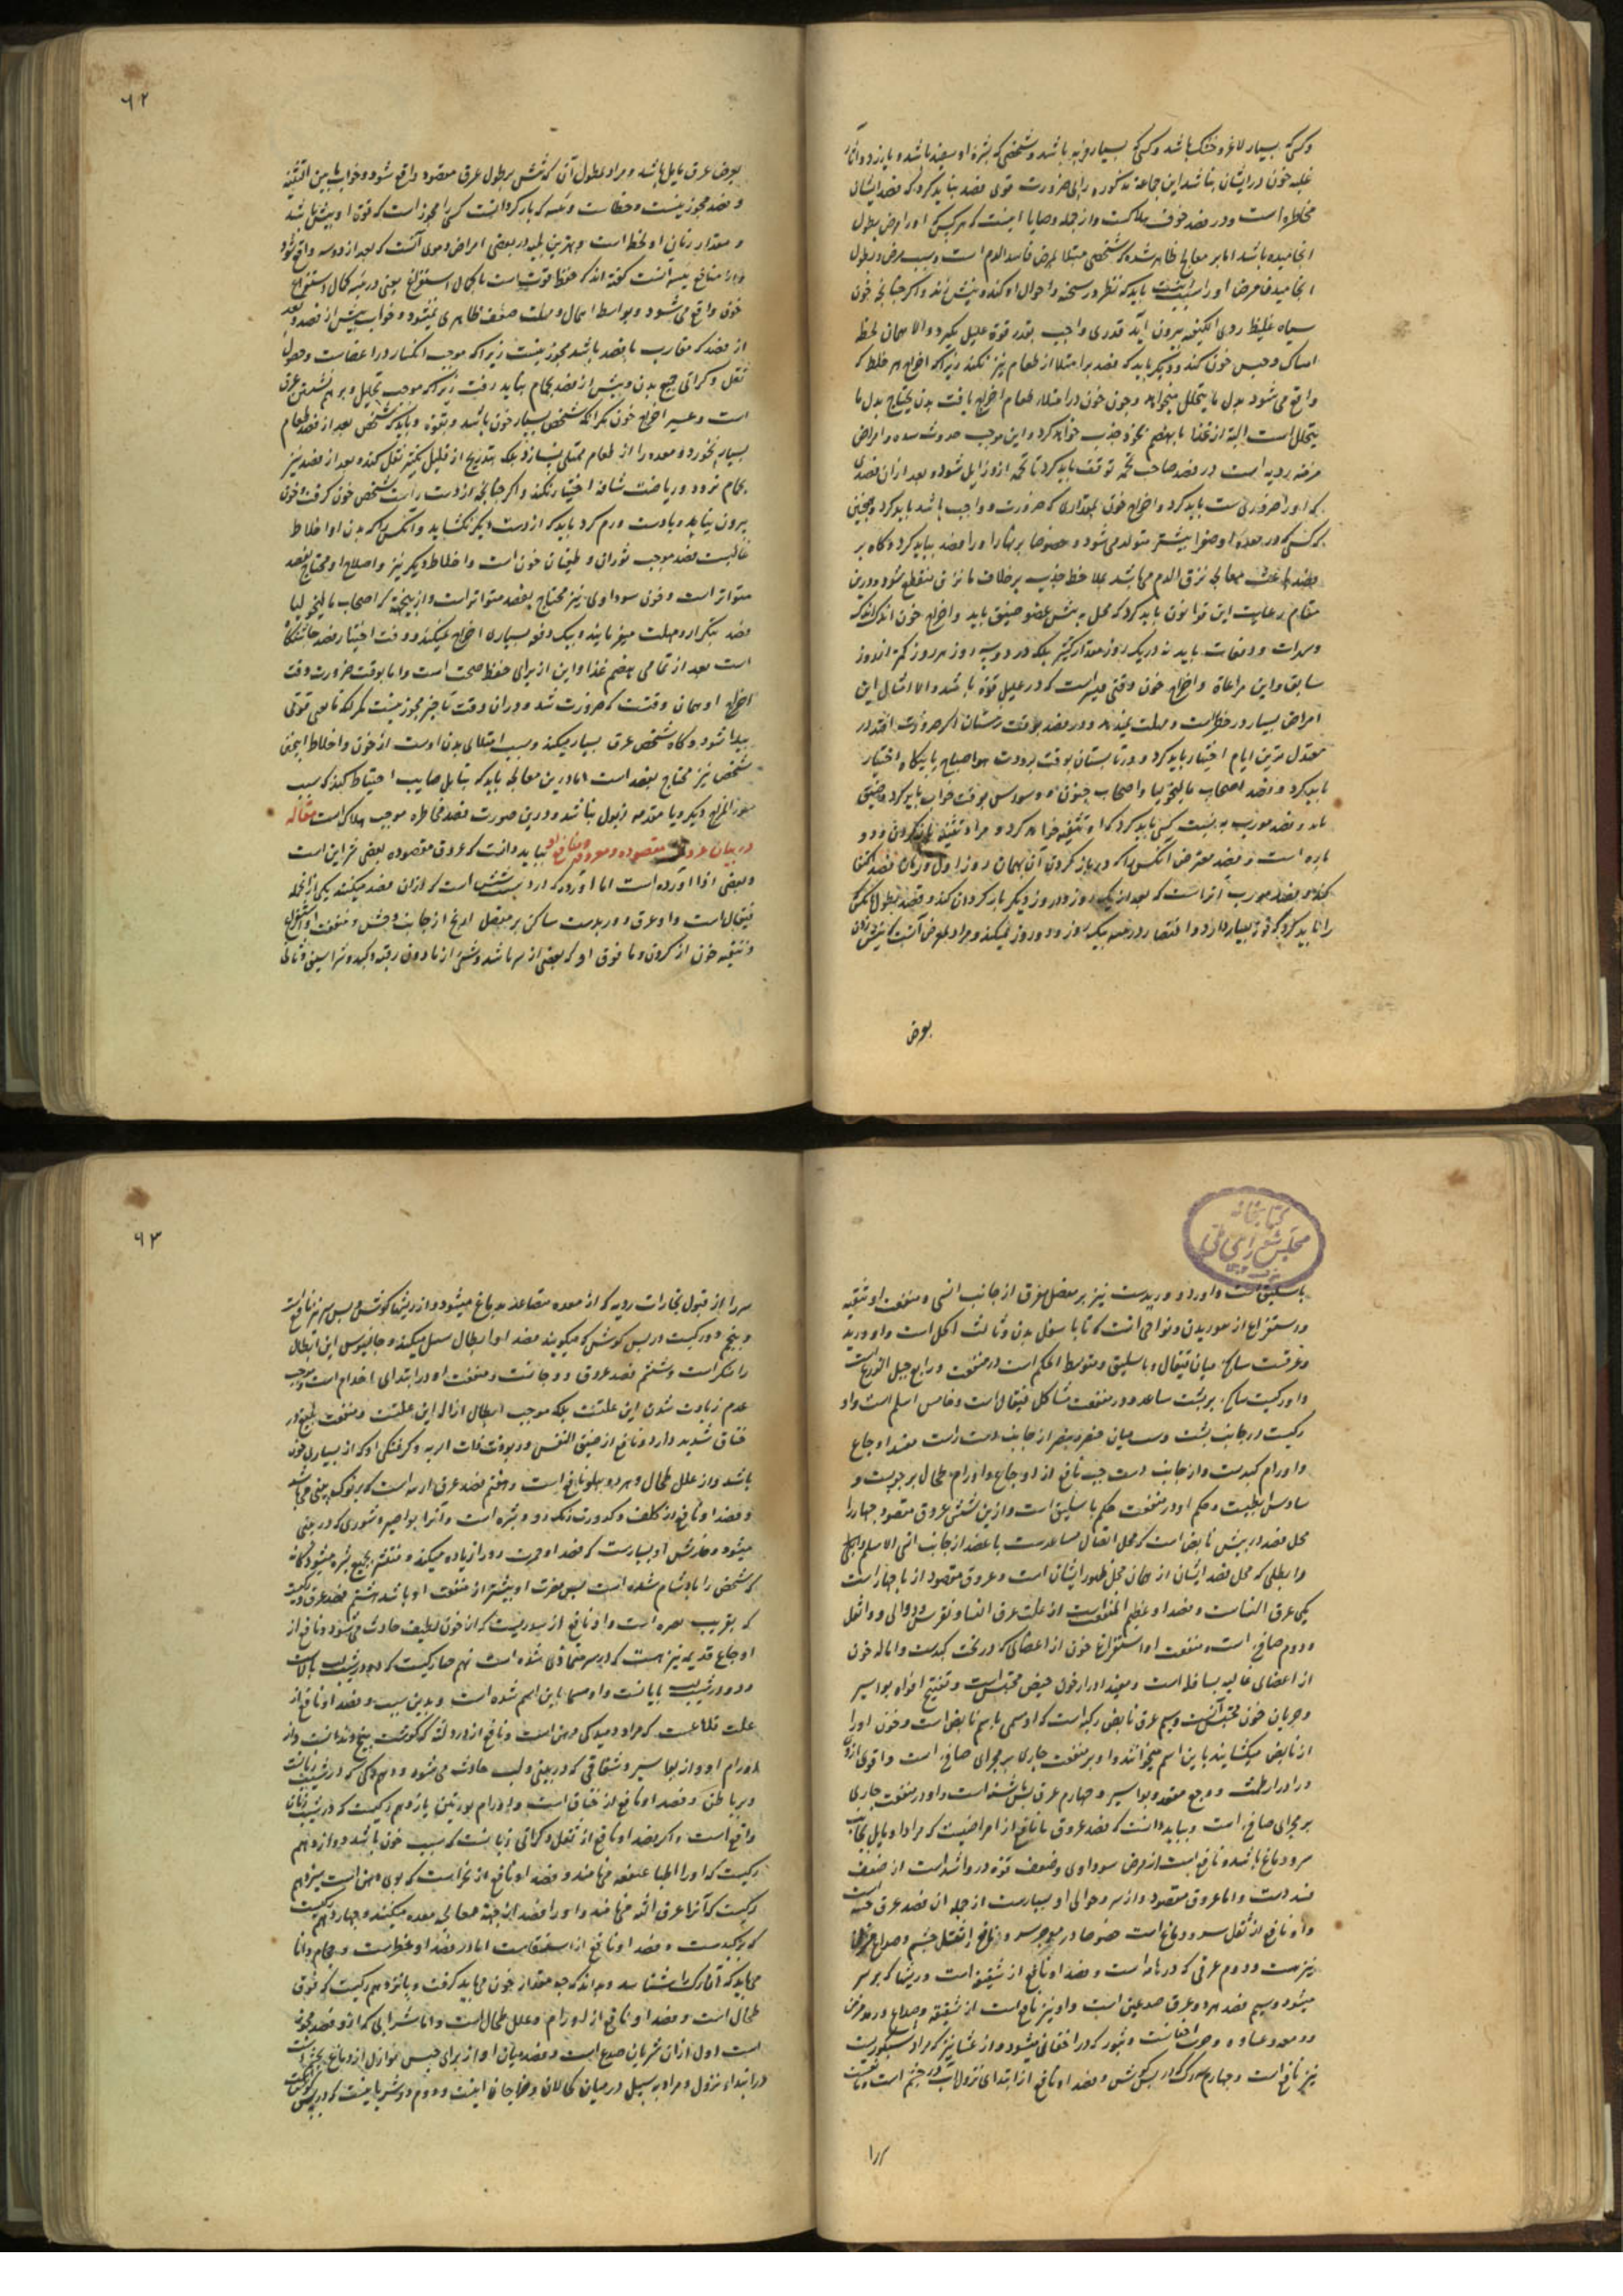 وکسی که بسیار لاغر و خشک باشد وکسی که بسیار فربه باشد وشخصی که بشره او سفید باشد و یا زرد و آثار
غلبه خون درایشان نباشد این جماعة مذکوره را بی ضرورت قوی فصد نباید کرد که فصد ایشان
مخاطره است ودر فصد خوف هلاکت واز جمله وصایا اینست که هرکس که اورا مرض بطول
انجامیده باشد اما بر معالج ظاهر شده که شخصی مبتلا بمرض فاسد الدم است وسبب مرض و بطول
انجامیدن مرض اورا باید که نظر در سحنه و احوال او کند و نیش زند واگر چنانچه خون
سیاه غلیظ ردی الکیفیه بیرون آید قدری واجب بقدر قوة علیل بگیرد والا همان لحظ
امساک وحبس خون کند ودیگر باید که فصد بر امتلا از طعام نیز نکند زیرا که اخراج هر خلط که
واقع می شود بدل ما یتحلل میخواهد وچون خون در امتلاء طعام اخراج یافت بدن محتاج بدل ما
یتحلل است البته از غذا نا بهضم بخود جذب خواهد کرد و این موجب حدوث سده و امراض
مزمنه ردیه است در فصد صاحب تخمه توقف باید کرد تا تخمه ازو زایل شود و بعد ازان فصدی
که اورا ضروریست باید کرد واخراج خون بمقداری که ضرورت و واجب باشد باید کرد وهمچنین
هر کسی که در معده او صفرا بیشتر متولد می شود و خصوصا بر نهار اورا فصد نباید کرد و گاه بر
فصد باعث معالجه نزف الدم می باشد بملاحظه جذب بر خلاف تا نزف منقطع شود ودرین
مقام رعایت این قوانون باید کرد که محل نیش عضو ضیق باید واخراج خون اندک اندک
ومرات و دفعات باید نه در یک روز مقدار کثیر بلکه در دو سه روز هر روز کمتر از روز
سابق واین مراعاة واخراج خون وقتی میسر است که در علیل قوة باشد والا امثال این
امراض بسیار در خطر است و مهلت نمیدهد ودر فصد بوقت زمستان اگر ضرورت افتد در
معتدل ترین ایام اختیار باید کرد و در تابستان بوقت برودت هوا صباح یا بیگاه اختیار
باید کرد و فصد اصحاب مالیخولیا واصحاب جنون و وسواس بوقت خواب باید کرد و ضیق
باید و فصد مورب به نسبت کسی باید کرد که او تثنیه خواهد کرد و مراد تثنیه باز کردن دو
باره است و فصد معترض آنکس را که دیر باز کردن آن بهمان روز اول و زمان فصد اکتفا
کند و فصد مورب آنراست که بعد از یک روز و دو روز دیگر باز کردن کند و فصد بطول آنکس
را باید کرد که خون بسیار دارد و اقتصار در فصد بیک روز و دو روز نمیکند و مراد بعرض آنست که نیش زدن
بعرض
٩٢
بعرض عرق مایل باشد ومراد بطول آن که شش بر طول عرق مقصود واقع شود وخواب مابین التثنیه
و فصد مجوز نیست وخطاست و تثنیه که بار کردنست کسی را مجوز است که قوة او بیش باشد
و مقدار زمان او لحظه است وبهترین تثنیه در بعضی امراض دموی آنست که بعد از دو سه واقع شود
و از منافع تثنیه آنست گفته اند که حفظ قوتست با کمال استفراغ یعنی در تثنیه کمال استفراغ
خون واقع می شود وبواسطه امهال و مهلت ضعف ظاهری نمیشود وخواب پیش از فصد وبعد
از فصد که مقارب با فصد باشد مجوز نیست زیرا که موجب انکسار در اعضاست وحصول
ثقل و گرانی جمیع بدن و پیش از فصد بحمام نباید رفت زیرا که موجب تحلیل و برهم نشستن عرق
است و عسیر اخراج خون مگر آنکه شخص بسیار خون باشد و بقوة و باید که شخص بعد از فصد طعام
بسیار نخورد و معده را از طعام ممتلی نسازد بلکه بتدریج از قلیل بکثیر نقل کند و بعد از فصد نیز
بحمام نرود وریاضت شاقه اختیار نکند و اگر چنانچه از دست راست شخص خون گرفت و خون
بیرون نیاید و یا دست ورم کرد باید که از دست دیگر نگشاید و آنکس را که بدن او اخلاط
غالبست فصد موجب ثوران و طغیان خون است واخلاط دیگر نیز واصلاح او محتاج بفصد
متواتر است و خون سوداوی نیز محتاج بفصد متواتر است واز ینجهة که اصحاب مالیخولیا
فصد بتکرار و مهلت میفرمایند و بیک دفعه بسیار اخراج نمیکنند ووقت اختیار فصد چاشتگاه
است بعد از تمامی هضم غذا واین از برای حفظ صحت است واما بوقت ضرورت وقت
اخراج او همان وقتست که ضرورت شد و دران وقت تاخیر مجوز نیست مگر آنکه مانعی قوی
پیدا شود وگاه شخص عرق بسیار میکند وسبب امتلای بدن اوست از خون و اخلاط اینچنین
شخص نیز محتاج بفصد است اما درین معالجه باید که بتامل صایب احتیاط کند که سبب
سوء المزاج دیگر و یا مقدمه ذبول نباشد ودرین صورت فصد مخاطره موجب هلاک است مقاله
در بیان عروق مقصوده و معروفه و منافع او بباید دانست که عروق مقصوده بعضی شراین است
وبعضی اورده است اما اورده که از دست شش است که ازان فصد میکنند یکی ازانجمله
قیفال است و او عرق و وریدست ساکن بر مفصل مرفق از جانب وحشی و منفعت او استفراغ
و تنقیه خون از گردن و ما فوق او که بعضی از سر باشد وشی از مادون رقبه و کبد و شراسیف و ثانی
باسلیق است واورد و وریدست نیز بر مفصل مرفق از جانب انسی و منفعت او تنقیه
و استفراغ از صدر بدن ونواحی آنست که تا باسفل بدن وثالث اکحل است واو ورید
وعرقیست ساکن میان قیفال وباسلیق ومتوسط الحکم است در منفعت ورابع حبل الذراع است
واو رگیست ساکن بر پشت ساعد و در منفعت مشاکل قیفال است وخامس اسیلم است واو
رگیست در جانب پشت دست میان خنصر وبنصر از جانب دست راست مفید اوجاع
و اورام کبدست و از جانب دست چپ نافع از اوجاع واورام طحال بر چپست و
سادس ابطیست وحکم او در منفعت حکم باسلیق است وازین شش عروق مقصود چهار را
محل فصد در بیش نابض است که محل اتصال ساعدست با عضد از جانب انسی الا اسیلم
و ابطلی که محل فصد ایشان از همان محل ظهور ایشان است و عروق مقصود از پا چهار است
یکی عرق النساست و فصد او عظیم المنفعت است از علت عرق النسا ونقرس ودوالی وداء الفیل
ودوم صافن است و منفعت او استفراغ خون از اعضائی که در تحت کبدست واماله خون
از اعضای عالیه بسافله است ومفید ادرار خون حیض محتبس است و تفتیح افواه بواسیر
وجریان خون محتبس است وسیم عرق مابض رکبه است که او مسمی باسم نابض است وخون اورا
از نابض میگشایند باین اسم میخوانند و او بر منفعت جاری بمجرای صافن است واقوی ازو
در ادرار طمث و وجع مقعد وبواسیر وچهارم عرق پس پاشنه است واو در منفعت جاری
بر مجرای صافن است وبباید دانست که فصد عروق پا نافع از امراضیست که مراد او مایل بجانب
سر ودماغ باشد و نافع است از مرض سوداوی وضعف قوة درو اشد است از ضعف
فصد دست واما عروق مقصود از سر وحوالی او بسیارست از جمله آن فصد عرق جبهه است
واو نافع از ثقل سر و دماغ است خصوصا در مؤخر سر ونافع از ثقل چشم و صداع
نیز هست ودوم عرقی که در هامه است و فصد او نافع از شقیقه است وریشها که بر سر
میشود وسیم فصد هر دو عرق صدغین است واو نیز نافع است از شقیقه وصداع ورمد مزمن
ودمعه وغشاوه وجرب اجفان است وبثور که در اجفان میشود واز عشا نیز که مراد شبکوریست
نیز نافع است وچهارم دو رگ که در پس گوش وفصد او نافع از ابتدای نزول آب در چشم است ومانعست
سر را
٩٣
سر را از قبول بخارات ردیه که از معده متصاعد بدماغ میشود و از ریشها گوش و پس سر نیز نافع است
و پنجم دو رگیست در پس گوش که میگویند فصد او ابطال نسل میکند وجالینوس این ابطال
را منکر است و ششم فصد عروق ودجانست ومنفعت او در ابتدای جذام است و موجب
عدم زیادت شدن این علتست بلکه موجب ابطال ازاله این علتست و منفعت بلیغ در
خناق شدید دارد و نافع از ضیق النفس و ربو وذات الریه وگرفتگی او که از بسیاری خون
باشد واز علل طحال و هر دو پهلو نافع است وهفتم فصد عرق ارنبه است که بر نوک بینی می باشد
و فصد او نافع از کلف و کدورت رنگ رو و بشره است و آنرا بواسیر وبثوری که در بینی
میشود وخارش او بسیارست که فصد او حمرت رو را زیاده میکند و منتشر بجمیع بشره میشود گمانه
که شخص را بادشنام شده است پس مضرت او بیشتر از منفعت او باشد هشتم فصد عرق و رگیست
که بقریب نقره است و او نافع از سدریست که از خون لطیف حادث می شود و نافع از
اوجاع قدیمه نیز هست که در سر متمادی شده است نهم چهار رگیست که دو در شیب لب بالاست
ودو در شیب لب پایانست واو مسما باین اسم شده است وبدین سبب و فصد او نافع از
علت قلاعست که مراد دمیدگی دهن است ونافع از درد لثه که گوشت بیخ دندانست واز
اورام او واز بواسیر و شقاقی که در بینی ولب حادث می شود و دهم رگی که در شیب زبانست
و بر باطن ذقن و فصد او نافع از خناق است واورام لوزتین یازدهم رگیست که در شیب زبان
واقع است و اگر فصد او نافع از ثقل وگرانی زبانست که بسبب خون باشد دوازدهم
رگیست که اورا اطبا عنفقه می نامند و فصد او نافع از بخر است که بوی دهن است سیزدهم
رگیست که آنرا عرق اللثه می نامند و اورا فصد از جهة معالجه معده میکنند وچهاردهم رگیست
که بر کبدست و فصد او نافع از استسقاست اما در فصد او خطر است وحجام دانا
می باید که آن رگ را شناسد وبداند که چه مقدار خون می باید گرفت و پانزدهم رگیست که فوق
طحال است و فصد او نافع از اورام وعلل طحال است واما شراینی که ازو فصد مجوز
است اول ازان شریان صدغ است و فصد میان او از برای حبس نوازل از دماغ بچشم
در ابتداء نزول ومراد به سبیل درمیان کحالان و جراحان اینست و دوم دو شریانیست که در پس گوشست
کتابخانه
مجلس شورای ملی